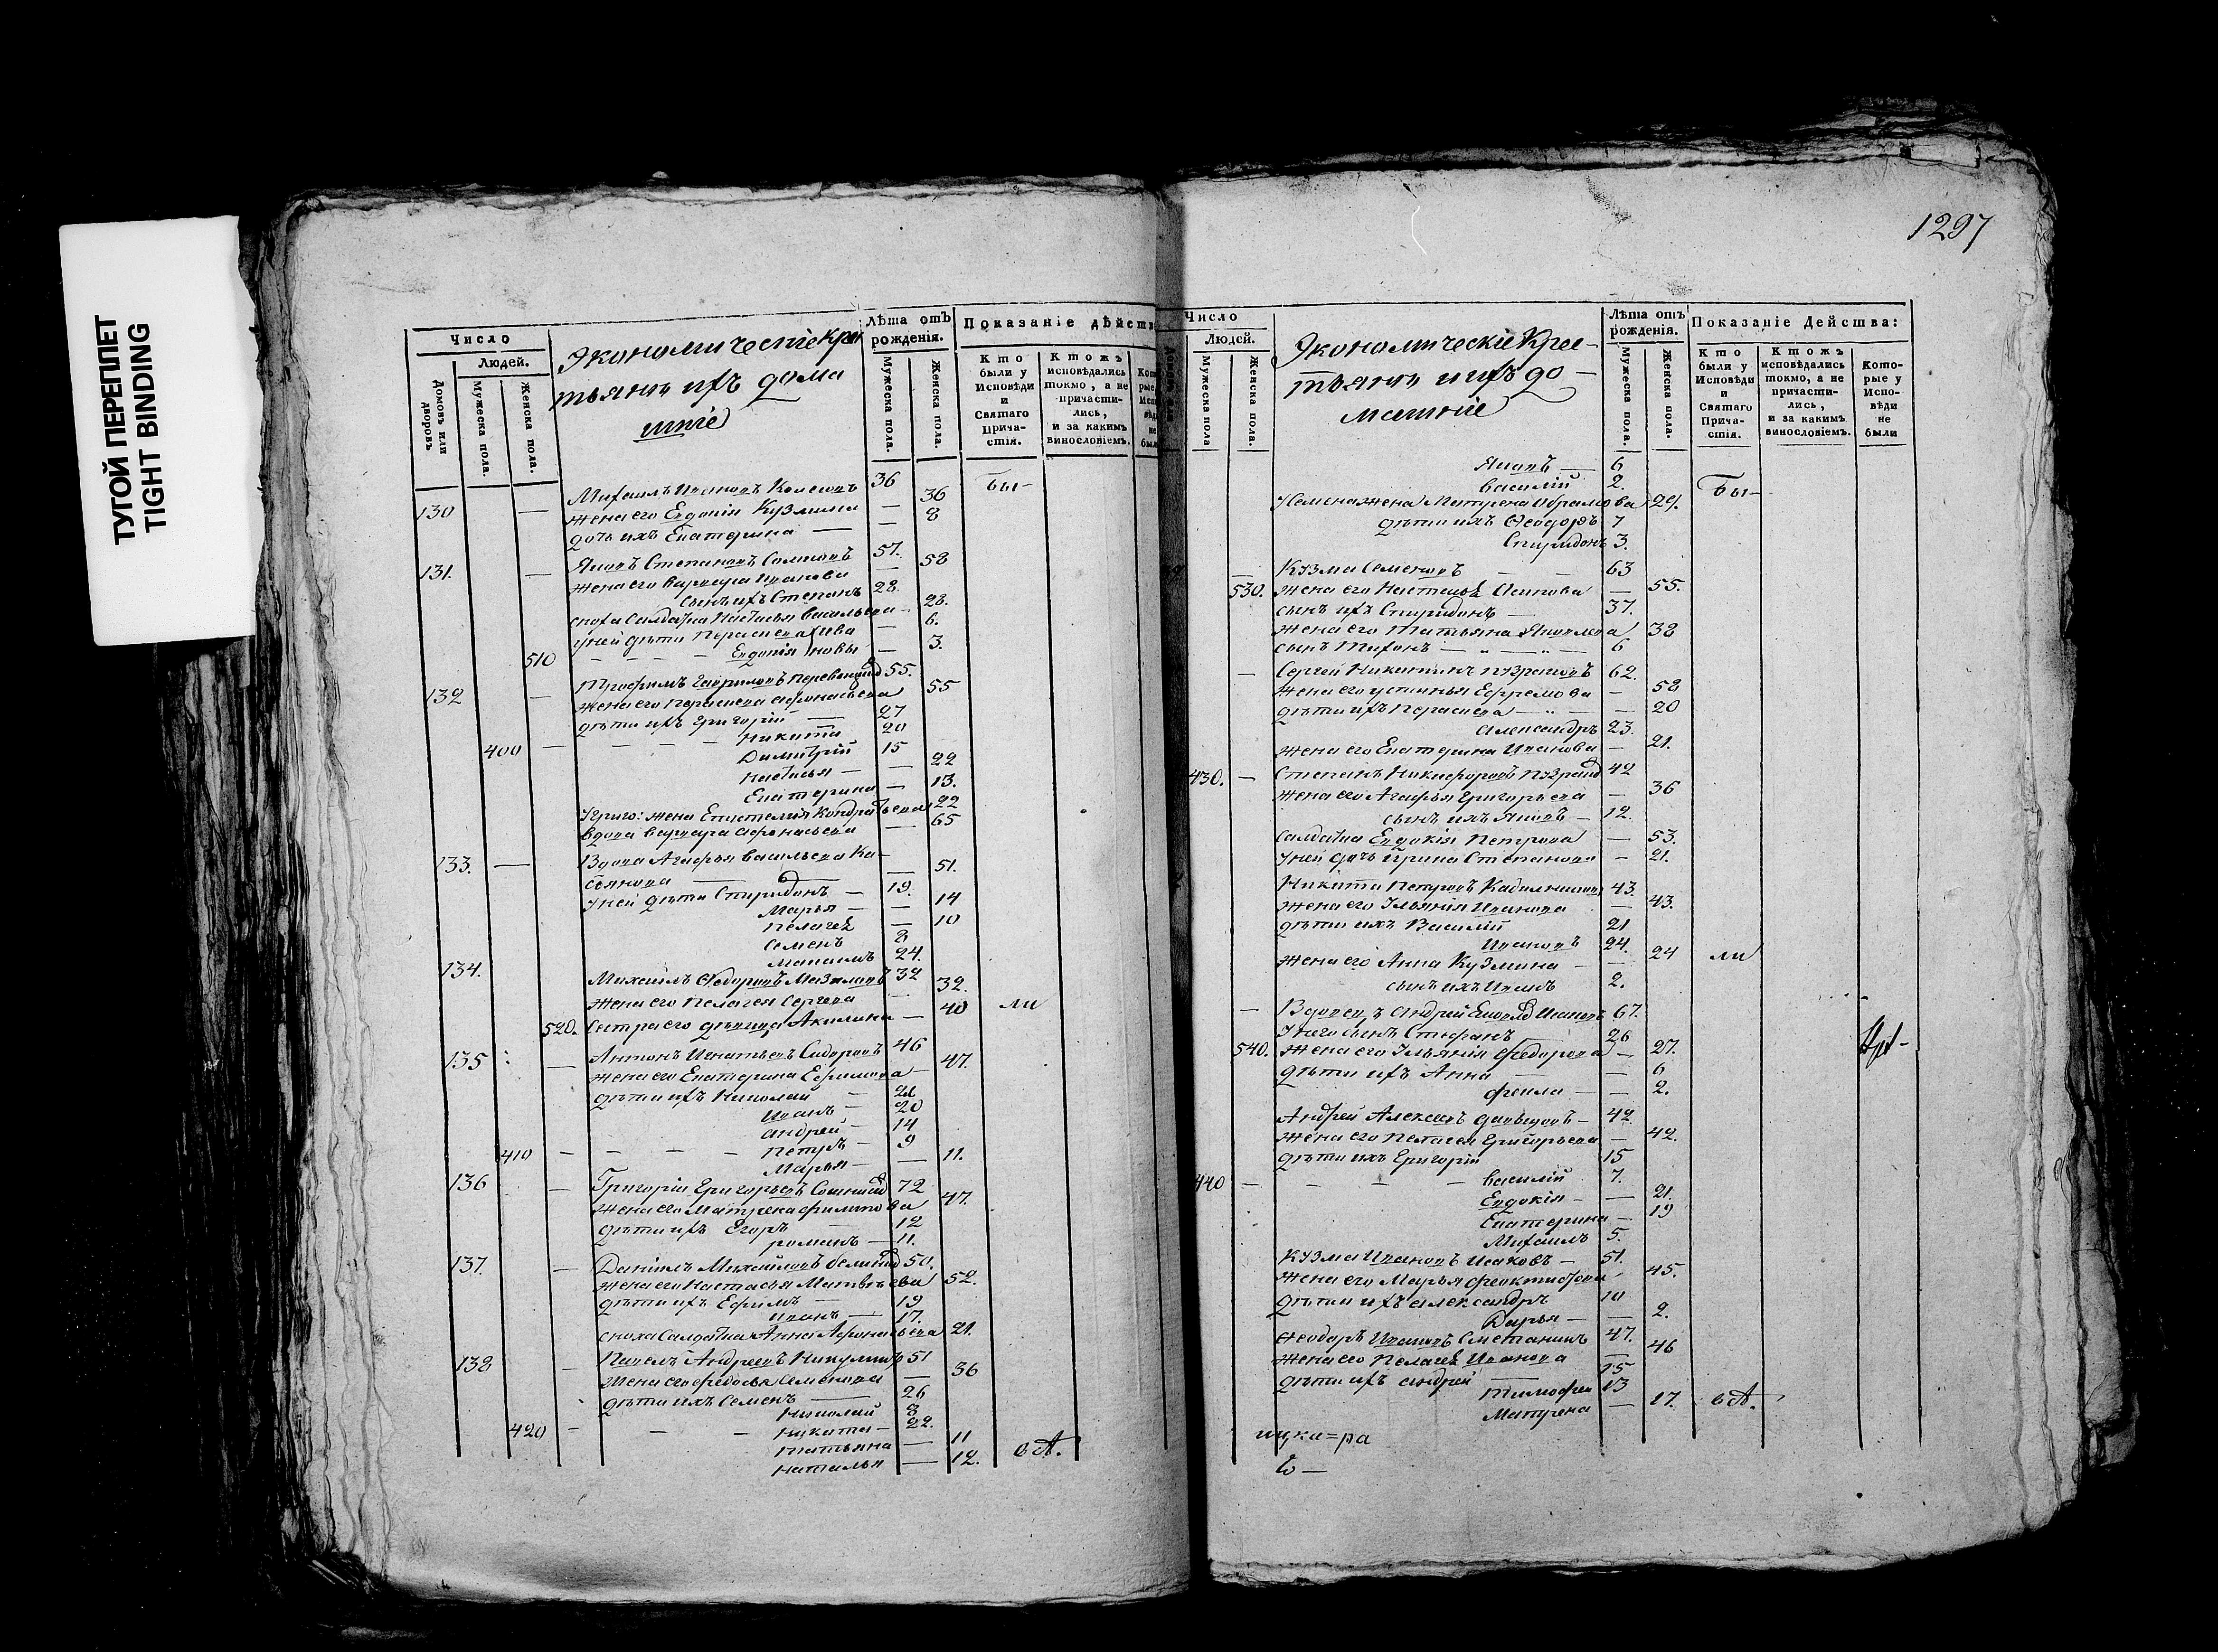 ТУГОЙ ПЕРЕПЛЕТ
TIGHT BINDING
Число
Людей.
Домовъ или дворовъ
Мужеска пола.
Женска пола.
Экономическіе крес
тьяне ихъ дома
шніе
Лѣта отъ рожденія.
Мужеска пола.
Женска пола.
Показаніе дѣйств
Кто были у Исповѣди и Святаго Причастія.
Ктожъ исповѣдались токмо, а не причастились, и за какимъ винословіемъ.
130 — Михаилъ Ивановъ 36 бы-
жена его Евдокія Кузмина — 36
дочь ихъ Екатерина — 8
131. — Яковъ Степановъ 57.
жена его варвара Иванова — 58
сынъ ихъ Степанъ 28.
сноха Салдатка Настасья васильева — 28.
у ней дѣти Параскева — 6.
510 Евдокія — 3.
132 — Трофимъ Гавриловъ 55.
жена его Параскева Афонасьева 55
дѣти ихъ Григорій — 27
400 — Никита 20
Димитрій 15
Настасья — 22
Екатерина — 13.
У Григо: жена Епистемія Кондратьева 22
вдова варвара Афонасьева — 65
133. — Вдова Агафья васильева Ка-
— 51.
У ней дѣти Спиридонъ — 19.
Марья — 14
Пелагея — 10
Семенъ 8
24.
134. Михаилъ Ѳедоровъ 32
жена его Пелагея Сергеева — 32.
520. Сестра его дѣвица Акилина — 40 ли
135 — Антонъ Игнатьевъ Сидоровъ 46
жена его Екатерина Ефимова — 47.
дѣти ихъ Николай —
Иванъ — 20
Андрей — 14
410 — Петръ — 9
Марья — 11.
136 — Григорій Григорьевъ 72
жена его Матрена филипова 47.
дѣти ихъ Егоръ — 12
романъ — 11.
137. — Даніилъ Михайловъ 50.
жена его Настасья Матвѣева 52.
дѣти ихъ Ефимъ — 19
Иванъ — 17.
сноха Салдатка Анна Афонасьева 21.
138 — Павелъ Андреевъ Никулинъ 51
Жена его федосья Семенова — 36
дѣти ихъ Семенъ — 26
Николай 8
420 — Никита — 22.
татьяна — 11
наталья — 12.
1297
Число
Людей.
Мужеска пола
Женска пола.
Экономическіе Крес-
тьяне и ихъ до-
машніе
Лѣта отъ рожденія.
Мужеска пола.
Женска пола.
Показаніе Действа:
Кто были у Исповѣди и Святаго Причастія.
Ктожъ исповѣдались токмо, а не причастились, и за какимъ винословіемъ.
Которые у Исповѣди не были
Яковъ — 6
василій 2. Бы-
У Семена жена Матрена Абрамова 29.
дѣти ихъ Ѳеодоръ 7
Спиридонъ 3.
— Кузма Семеновъ 63
530. жена его Настасья Осипова — 55.
сынъ ихъ Спиридонъ — 37.
жена его Татьяна Яковлева 38
сынъ Тихонъ — 6
— Сергей Никитинъ 62.
жена его устинья Ефремова — 58
дѣти ихъ Параскева — 20
Александръ 23.
жена его Екатерина Иванова — 21.
430. — Степанъ Никифоровъ 42
жена его Агафья Григорьева — 36
сынъ ихъ Яковъ — 12.
Салдатка Евдокія Петрова — 53.
У ней дочь Ирина Степанова — 21.
Никита Петровъ 43.
жена его Ульянія Иванова — 43.
дѣти ихъ Василій 21
24.
жена его Анна Кузмина — 24 ли
сынъ ихъ Иванъ 2.
— Вдовецъ Андрей 67.
У него сынъ Стефанъ 26
540. жена его Ульянія федорова — 27.
дѣти ихъ Анна — 6
фекла — 2.
Андрей Алексеевъ Давыдовъ — 42.
жена его Пелагея Григорьева — 42.
дѣти ихъ Григорій 15
440 — василій 7.
Евдокія — 21.
Екатерина — 19
Михаилъ 5.
Кузма Ивановъ Исаковъ — 51.
жена его Марья 45.
дѣти ихъ Александръ 10
Дарья — 2.
Ѳеодоръ Ивановъ Сметанинъ 47.
жена его Пелагея Иванова — 46
дѣти ихъ Андрей — 15
Тимофей 13
Матрена — 17.